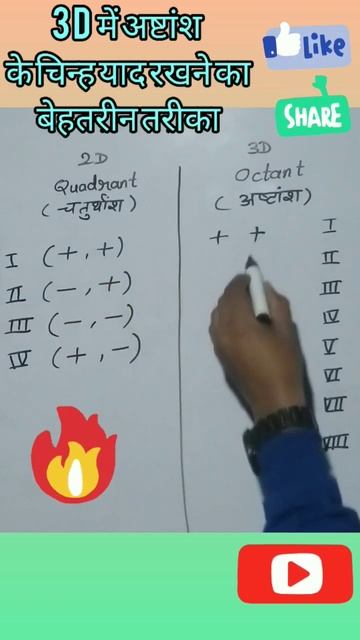 3D में अष्टांश
के चिन्ह याद रखने का
बेहतरीन तरीका
Like
SHARE
2D
Quadrant
(चतुर्थांश)
I (+, +)
II (-, +)
III (-, -)
IV (+, -)
3D
Octant
(अष्टांश)
+ + I
II
III
IV
V
VI
VII
VIII